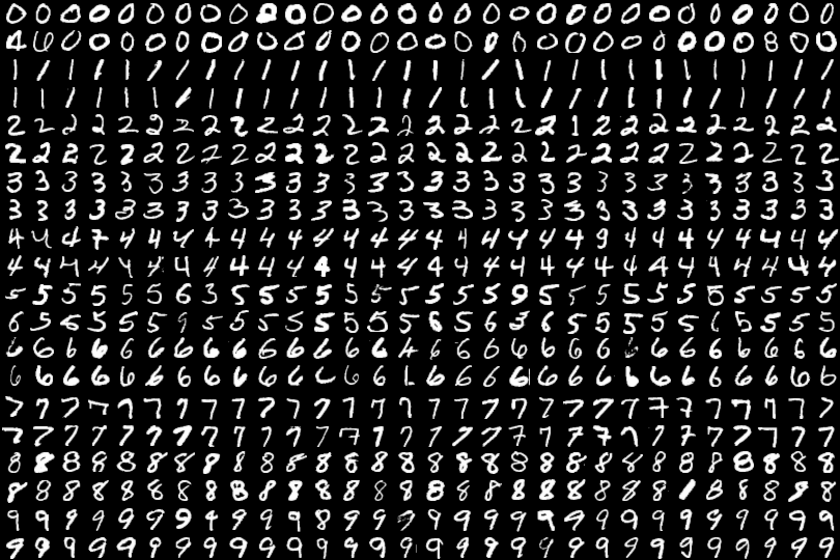 0 0 0 0 0 0 0 0 0 0 0 0 0 0 0 0 0 0 0 0 0 0 0 0 0 0 0 0 0 0
4 6 0 0 0 0 0 0 0 0 0 0 0 0 0 0 0 0 0 0 0 0 0 0 0 0 0 8 0 0
1 1 1 1 1 1 1 1 1 1 1 1 1 1 1 1 1 1 1 1 1 1 1 1 1 1 1 1 1 1
1 1 1 1 1 1 1 1 1 1 1 1 1 1 1 1 1 1 1 1 1 1 1 1 1 1 1 1 1 1
2 2 2 2 2 2 2 2 2 2 2 2 2 2 2 2 2 2 2 2 1 2 2 2 2 2 2 2 2 2
2 2 2 2 2 2 2 2 2 2 2 2 2 2 2 2 2 2 2 2 2 2 2 2 2 2 2 2 2 2
3 3 3 3 3 3 3 3 3 3 3 3 3 3 3 3 3 3 3 3 3 3 3 3 3 3 3 3 3 3
3 3 3 3 3 3 3 3 3 3 3 3 3 3 3 3 3 3 3 3 3 3 3 3 3 3 3 3 3 3
4 4 4 7 4 4 4 4 4 4 4 4 4 4 4 4 4 4 4 4 4 9 4 4 4 4 4 4 4 4
4 4 4 4 4 4 4 4 4 4 4 4 4 4 4 4 4 4 4 4 4 4 4 4 4 4 4 4 4 4
5 5 5 5 5 5 6 3 5 5 5 5 5 5 5 5 5 5 9 5 5 5 5 5 5 5 5 5 5 5
6 5 5 5 5 5 9 5 5 5 5 5 5 5 5 6 5 6 3 6 5 5 5 5 5 6 5 5 5 5
6 6 6 6 6 6 6 6 6 6 6 6 6 6 4 6 6 6 6 6 6 6 6 6 6 6 6 6 6 6
6 6 6 6 6 6 6 6 6 6 6 6 6 6 6 6 6 6 6 6 6 6 6 6 6 6 6 6 6 6
7 7 7 7 7 7 7 7 7 7 7 7 7 7 7 7 7 7 7 7 7 7 7 7 7 7 7 7 7 7
7 7 7 7 7 7 7 7 7 7 7 7 7 7 7 7 7 7 7 7 7 7 7 7 7 7 7 7 7 7
8 8 8 8 8 8 8 8 8 8 8 8 8 8 8 8 8 8 8 8 8 8 8 8 8 8 8 8 8 8
8 8 8 8 8 8 8 8 8 8 8 8 8 8 8 8 8 8 8 8 8 8 8 8 1 8 8 8 8 8
9 9 9 9 9 9 9 9 9 9 9 8 9 9 9 9 9 9 9 9 9 9 9 9 9 9 9 9 9 9
9 9 9 9 9 9 9 9 9 9 9 9 9 9 9 9 9 9 9 9 9 9 9 9 9 9 9 9 9 9